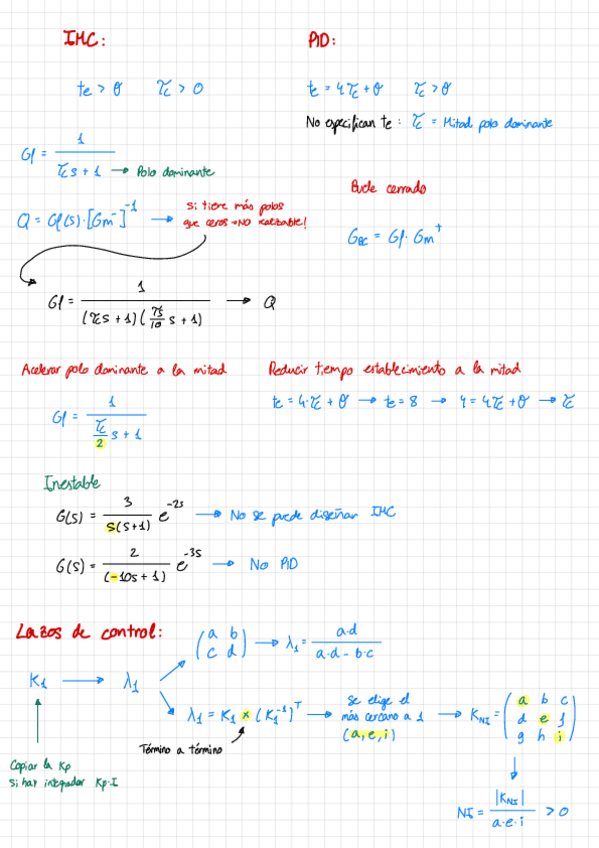 IMC:
te > θ   τc > 0
Gf = 1 / (τc s + 1) → Polo dominante
Q = Gf(s)·[Gm⁻]⁻¹ → si tiene más polos
que ceros → NO realizable!
Gf = 1 / ((τc s + 1)(τc/10 s + 1)) → Q
PID:
te = 4τc + θ   τc > θ
No especifican te : τc = Mitad polo dominante
Bucle cerrado
GBC = Gf · Gm⁺
Acelerar polo dominante a la mitad
Gf = 1 / (τc/2 s + 1)
Reducir tiempo establecimiento a la mitad
te = 4·τc + θ → te = 8 → 4 = 4τc + θ → τc
Inestable
G(s) = 3 / (s(s+1)) e^-2s → No se puede diseñar IMC
G(s) = 2 / (-10s + 1) e^-3s → No PID
Lazos de control:
K1 → λ1
(a b
c d) → λ1 = a·d / (a·d - b·c)
λ1 = K1 × (K1⁻¹)ᵀ → Se elige el
más cercano a 1
(a, e, i)
→ KNI = (a b c
d e f
g h i)
Término a término
Copiar la Kp
si hay integrador Kp·I
NI = |KNI| / (a·e·i) > 0